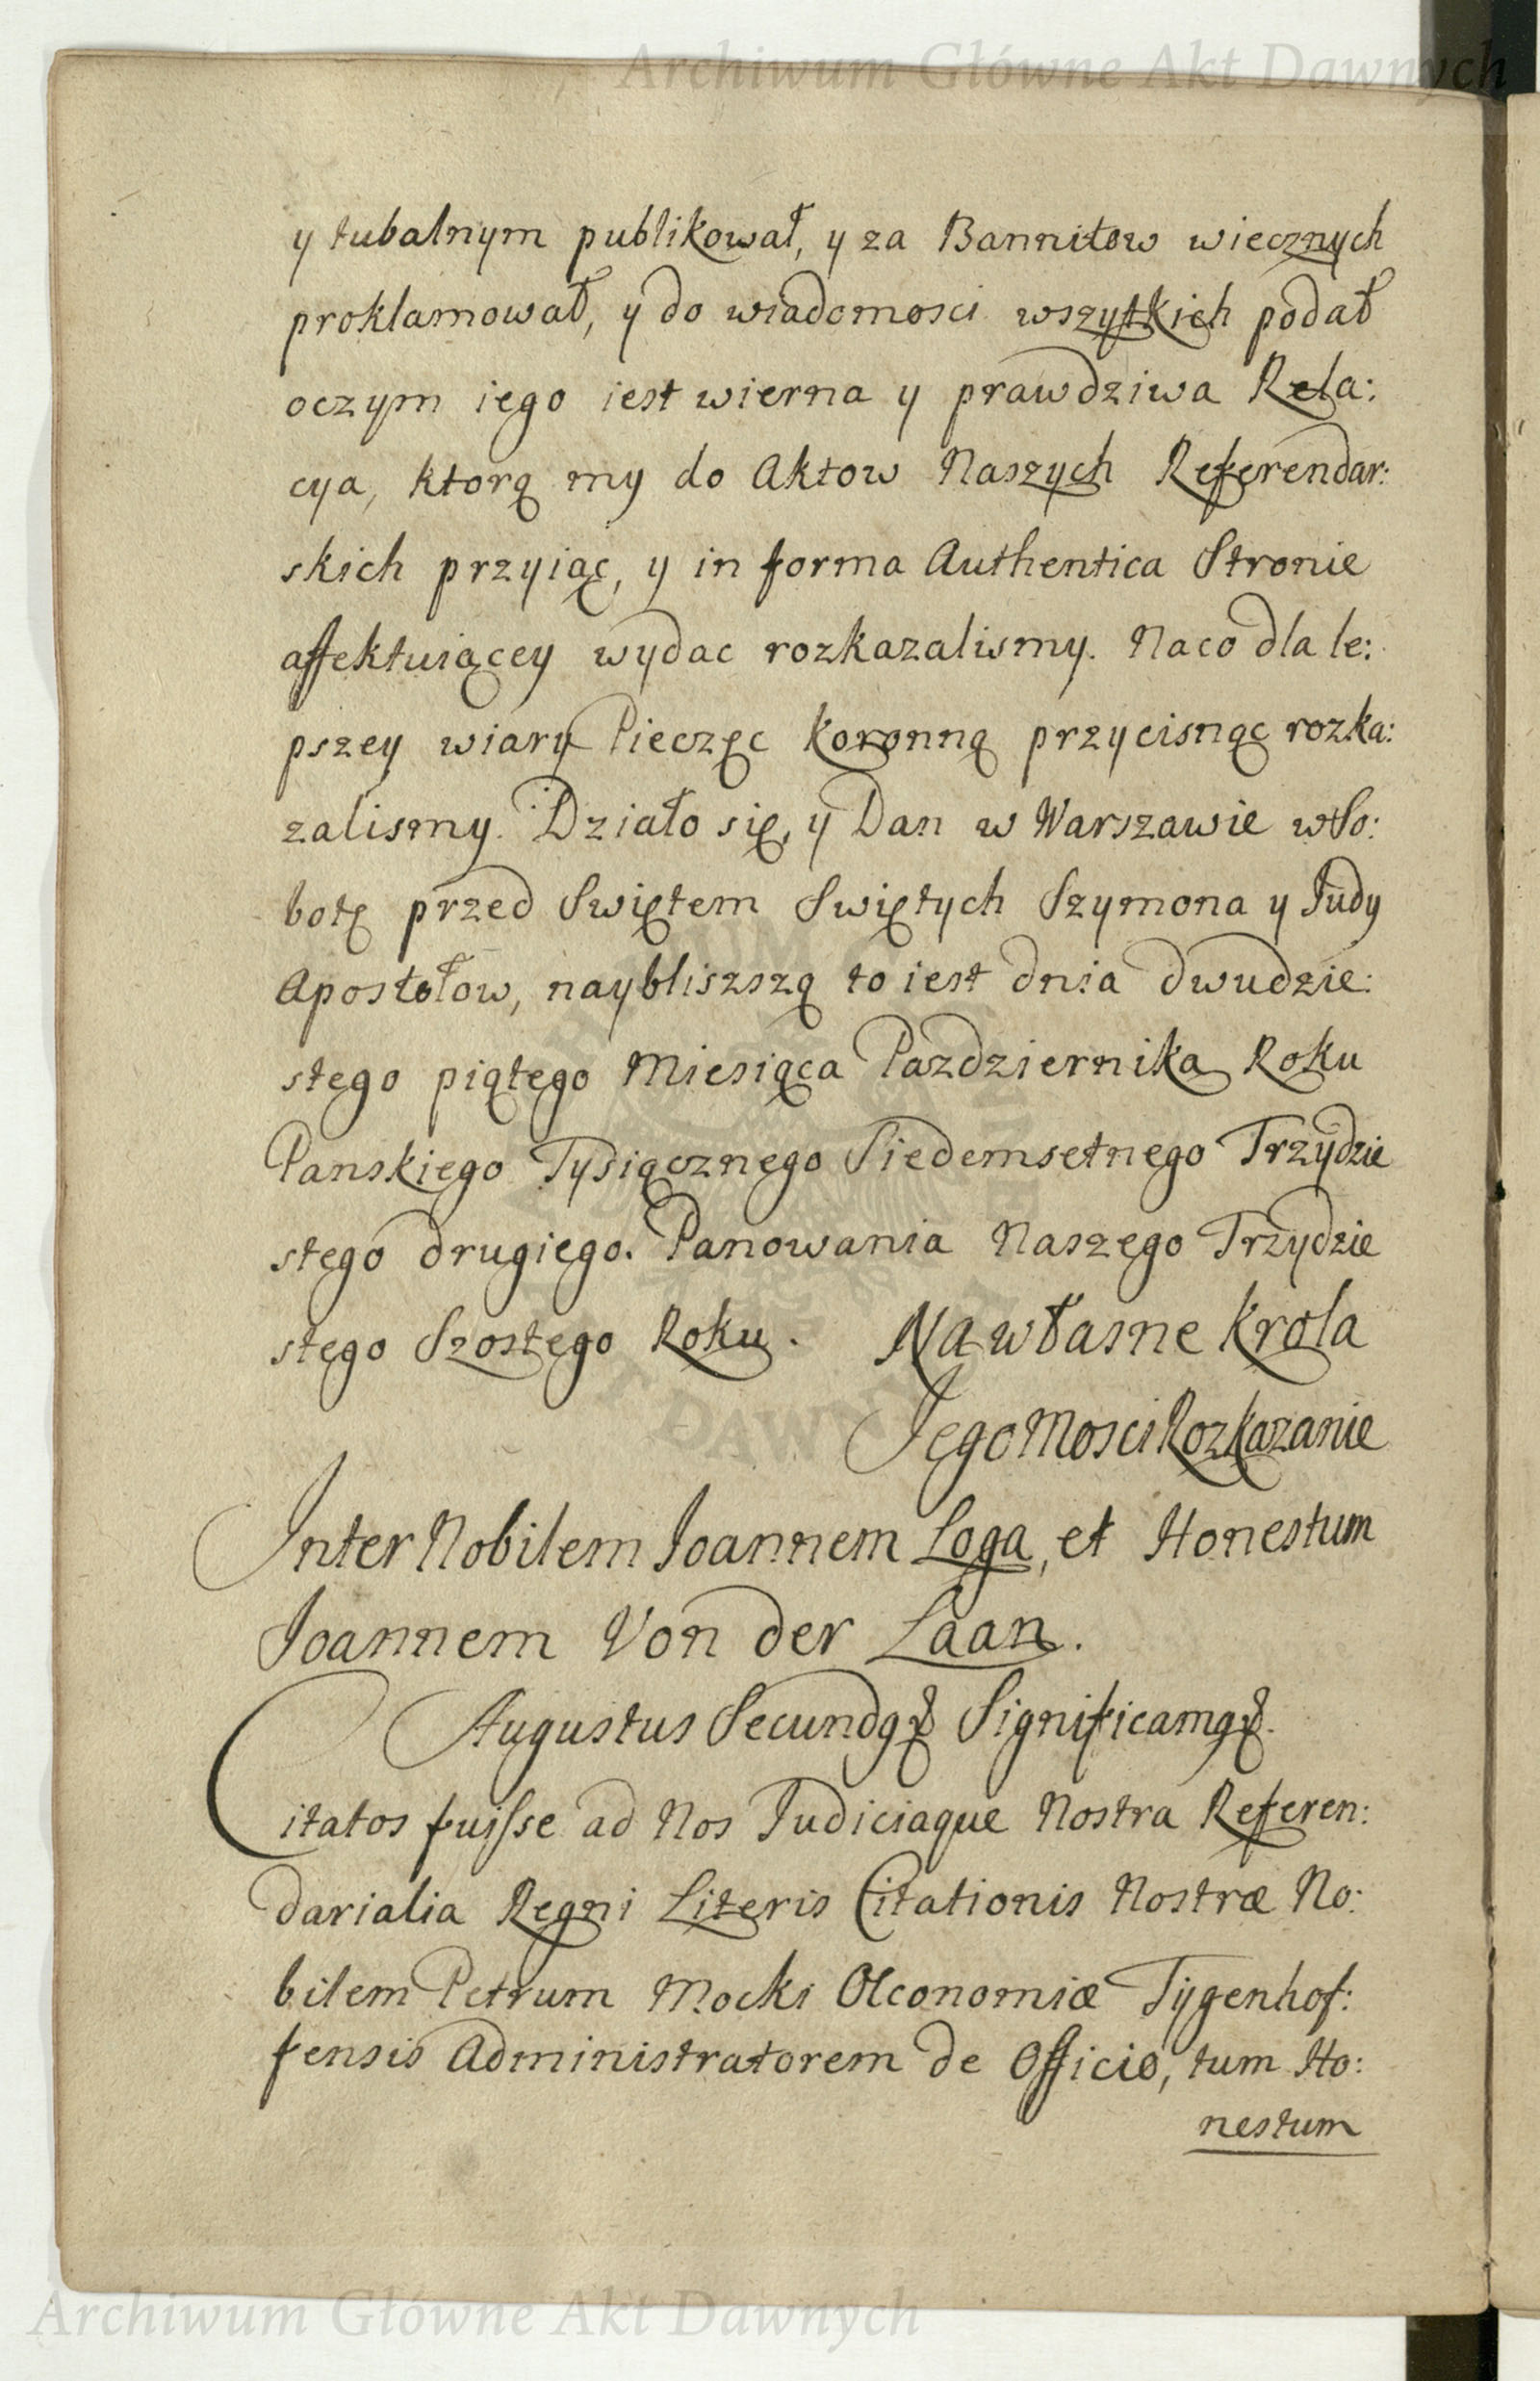 Archiwum Główne Akt Dawnych
y tubalnym publikował, y za Bannitow wiecznych
proklamował, y do wiadomosci wszytkich podał
oczym iego iest wierna y prawdziwa Rela:
cya, ktorą my do Aktow Naszych Referendar:
skich przyiąc, y in forma Authentica Stronie
affektuiącey wydac rozkazalismy. Naco dla le:
pszey wiary Pieczęc koronną przycisnąc rozka:
zalismy. Działo się, y Dan w Warszawie wSo:
botę przed Swiętem Swiętych Szymona y Judy
Apostołow, naybliszszą to iest dnia dwudzie:
stego piątego Miesiąca Pazdziernika Roku
Panskiego Tysiącznego Siedemsetnego Trzydzie
stego drugiego. Panowania Naszego Trzydzie
stego Szostego Roku. Na własne Krola
Jego Mosci Rozkazanie
Inter Nobilem Joannem Loga, et Honestum
Joannem Von der Laan.
Augustus
Citatos fuisse ad Nos Judiciaque Nostra Referen:
darialia Regni Literis Citationis Nostræ No:
bilem Petrum Mocki Oeconomiæ Tygenhof:
fensis Administratorem de Officio, tum Ho:
nestum
Archiwum Główne Akt Dawnych